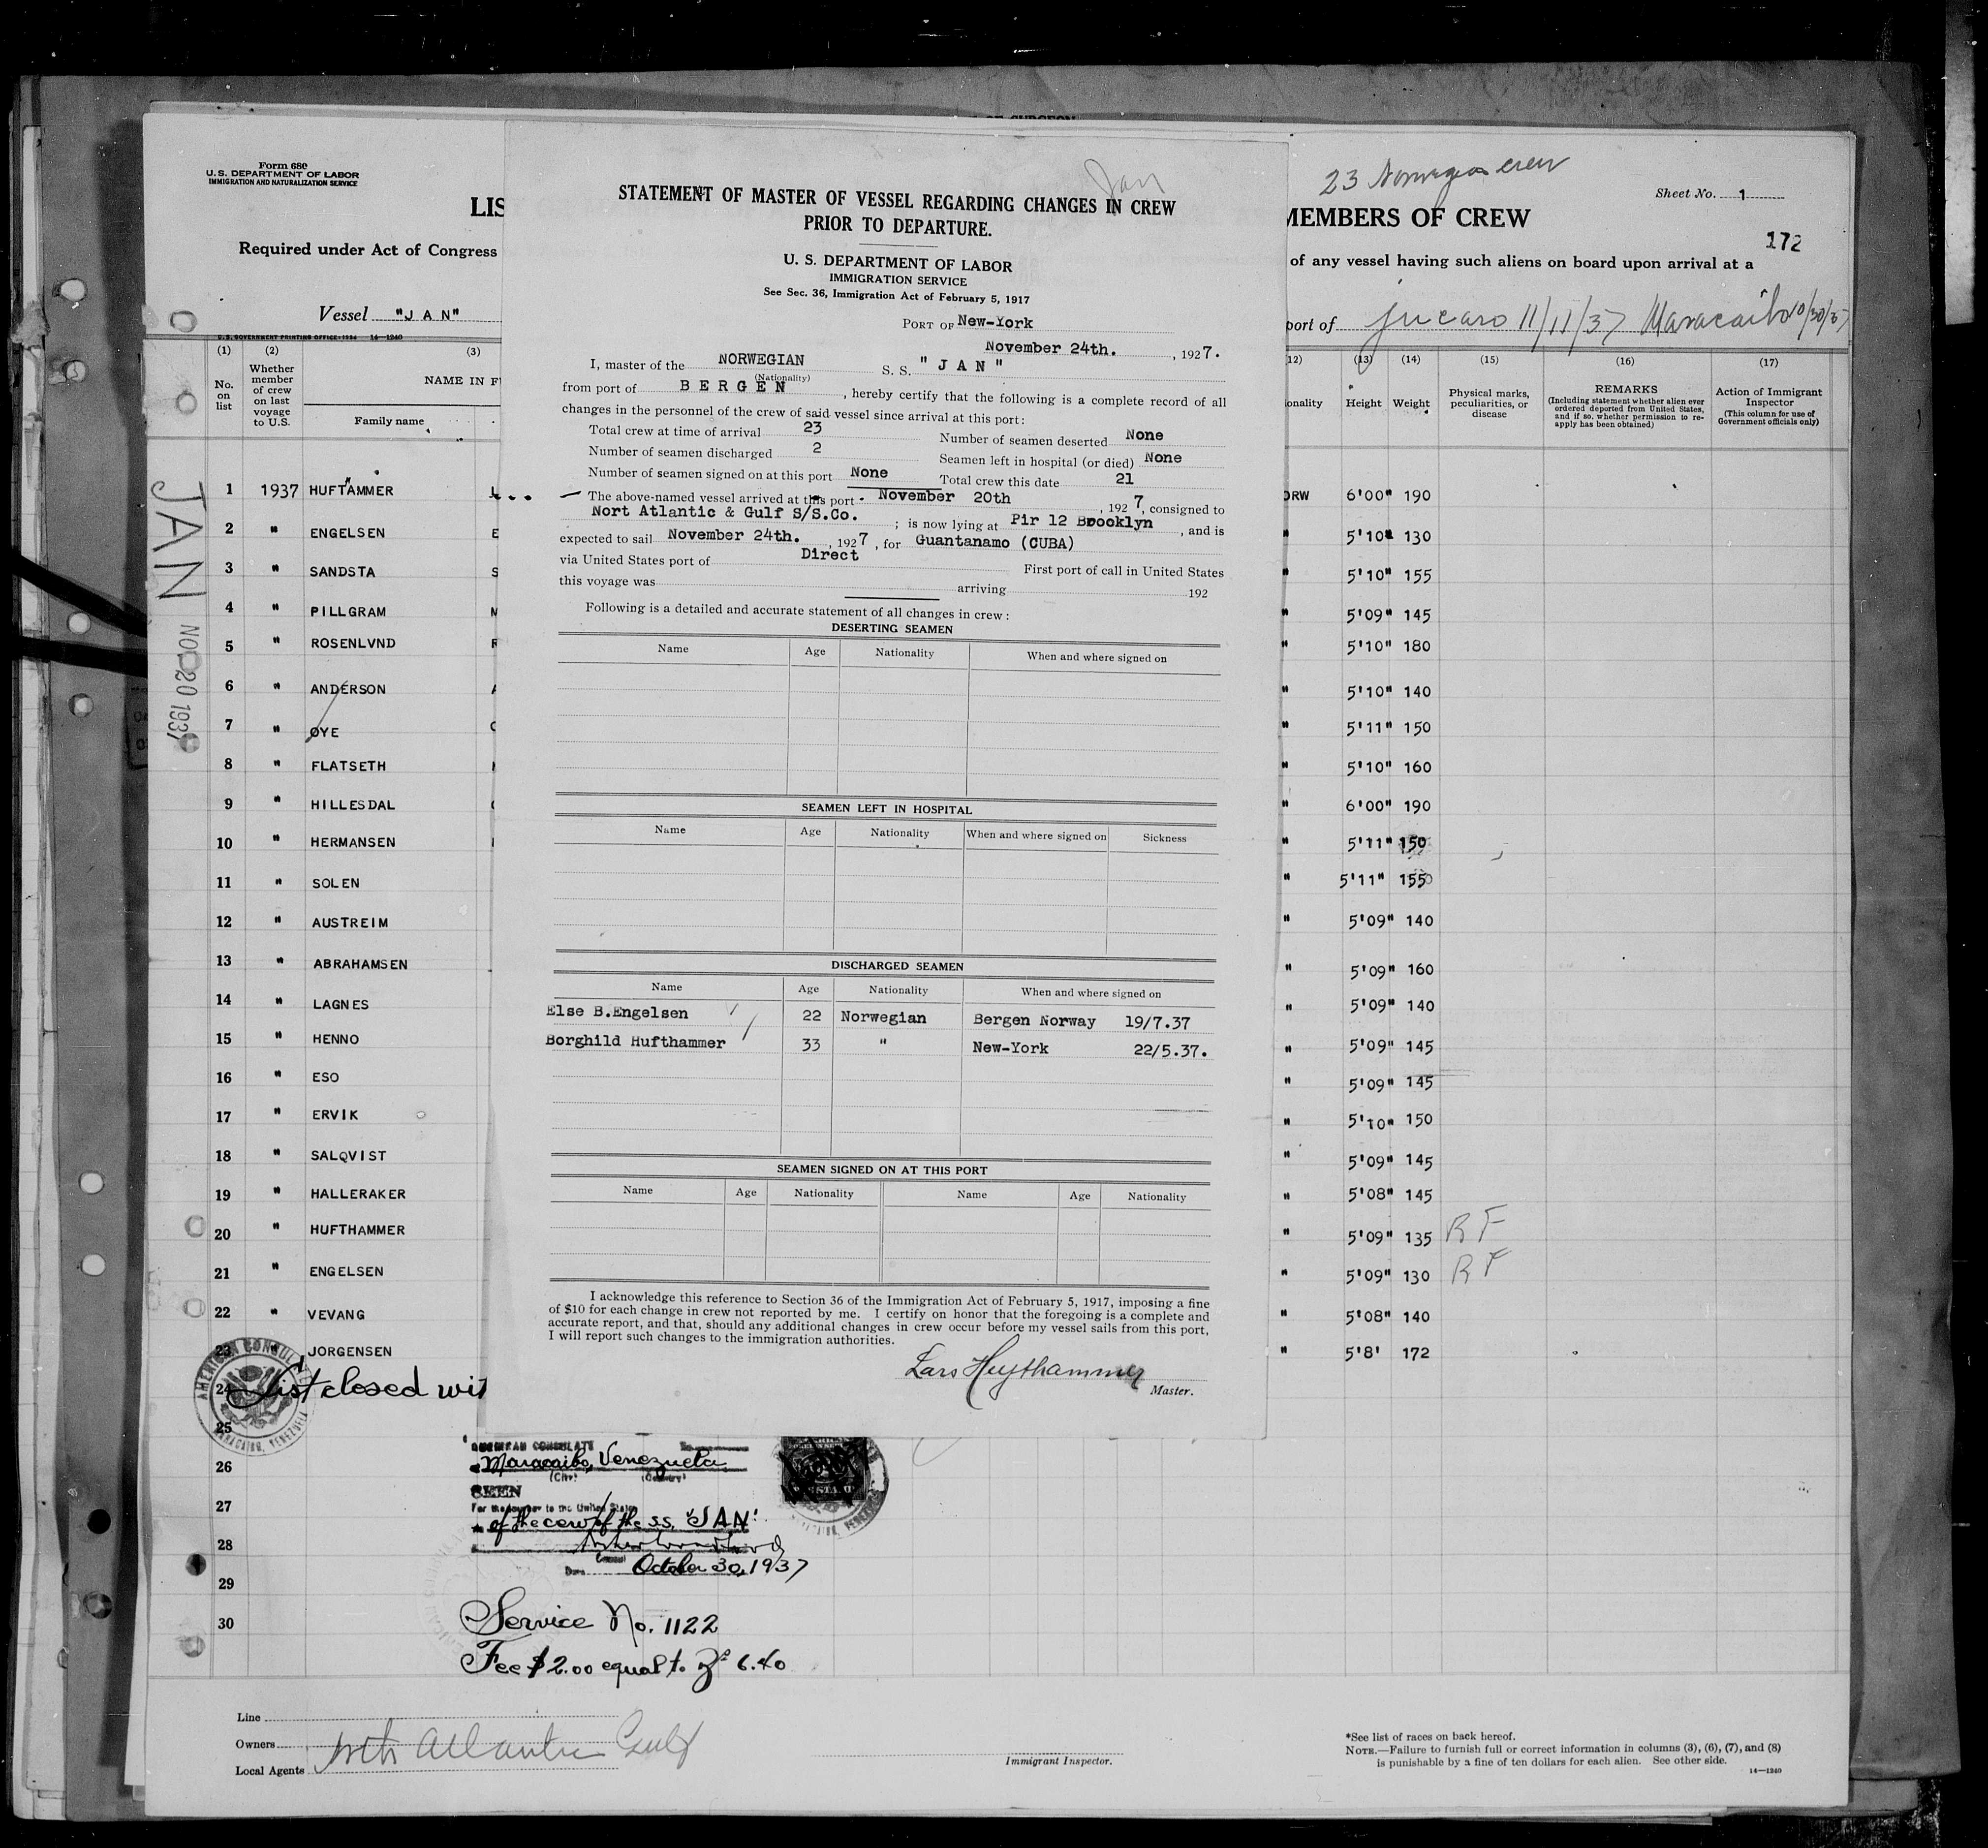 Form 680
U.S. DEPARTMENT OF LABOR
IMMIGRATION AND NATURALIZATION SERVICE
LIS
Required under Act of Congress
Vessel "JAN"
U.S. GOVERNMENT PRINTING OFFICE: 1934 14—1240
(1) (2) (3)
No. on list
Whether member of crew on last voyage to U.S.
NAME IN F
Family name
1 1937 HUFTAMMER L
2 " ENGELSEN E
3 " SANDSTA S
4 " PILLGRAM M
5 " ROSENLVND R
6 " ANDERSON A
7 " ØYE
8 " FLATSETH
9 " HILLESDAL
10 " HERMANSEN
11 " SOLEN
12 " AUSTREIM
13 " ABRAHAMSEN
14 " LAGNES
15 " HENNO
16 " ESO
17 " ERVIK
18 " SALQVIST
19 " HALLERAKER
20 " HUFTHAMMER
21 " ENGELSEN
22 " VEVANG
23 " JORGENSEN
24 List closed wit
25
26
27
28
29
30
JAN
NOV 20 1937
AMERICAN CONSULATE
MARACAIBO, VENEZUELA
Jan
STATEMENT OF MASTER OF VESSEL REGARDING CHANGES IN CREW
PRIOR TO DEPARTURE.
U. S. DEPARTMENT OF LABOR
IMMIGRATION SERVICE
See Sec. 36, Immigration Act of February 5, 1917
PORT OF New-York
November 24th. , 1927.
I, master of the NORWEGIAN S. S. " JAN "
(Nationality)
from port of BERGEN , hereby certify that the following is a complete record of all
changes in the personnel of the crew of said vessel since arrival at this port:
Total crew at time of arrival 23 Number of seamen deserted None
Number of seamen discharged 2 Seamen left in hospital (or died) None
Number of seamen signed on at this port None Total crew this date 21
The above-named vessel arrived at this port November 20th , 192 7, consigned to
Nort Atlantic & Gulf S/S.Co. ; is now lying at Pir 12 Brooklyn , and is
expected to sail November 24th. , 1927 , for Guantanamo (CUBA)
via United States port of Direct First port of call in United States
this voyage was arriving 192
Following is a detailed and accurate statement of all changes in crew:
DESERTING SEAMEN
Name Age Nationality When and where signed on
SEAMEN LEFT IN HOSPITAL
Name Age Nationality When and where signed on Sickness
DISCHARGED SEAMEN
Name Age Nationality When and where signed on
Else B.Engelsen 22 Norwegian Bergen Norway 19/7.37
Borghild Hufthammer 33 " New-York 22/5.37.
SEAMEN SIGNED ON AT THIS PORT
Name Age Nationality Name Age Nationality
I acknowledge this reference to Section 36 of the Immigration Act of February 5, 1917, imposing a fine
of $10 for each change in crew not reported by me. I certify on honor that the foregoing is a complete and
accurate report, and that, should any additional changes in crew occur before my vessel sails from this port,
I will report such changes to the immigration authorities.
Lars Hufthammer
Master.
23 Norwegian crew
Sheet No. 1
MEMBERS OF CREW
172
of any vessel having such aliens on board upon arrival at a
port of Jucaro 11/11/37 Maracaibo 10/30/37
12) (13) (14) (15) (16) (17)
onality Height Weight
Physical marks, peculiarities, or disease
REMARKS
(Including statement whether alien ever ordered deported from United States, and if so, whether permission to reapply has been obtained)
Action of Immigrant Inspector
(This column for use of Government officials only)
ORW 6'00" 190
" 5'10" 130
" 5'10" 155
" 5'09" 145
" 5'10" 180
" 5'10" 140
" 5'11" 150
" 5'10" 160
" 6'00" 190
" 5'11" 150
" 5'11" 155
" 5'09" 140
" 5'09" 160
" 5'09" 140
" 5'09" 145
" 5'09" 145
" 5'10" 150
" 5'09" 145
" 5'08" 145
" 5'09" 135 R F
" 5'09" 130 R F
" 5'08" 140
" 5'8' 172
AMERICAN CONSULATE
Maracaibo, Venezuela
(City) (Country)
SEEN
For the journey to the United States
of the crew of the ss. "JAN"
Consul
Date October 30, 1937
Service No. 1122
Fee $2.00 equal to Bs 6.40
Line
Owners
North Atlantic Gulf
Local Agents
Immigrant Inspector.
*See list of races on back hereof.
NOTE.—Failure to furnish full or correct information in columns (3), (6), (7), and (8)
is punishable by a fine of ten dollars for each alien. See other side.
14—1240